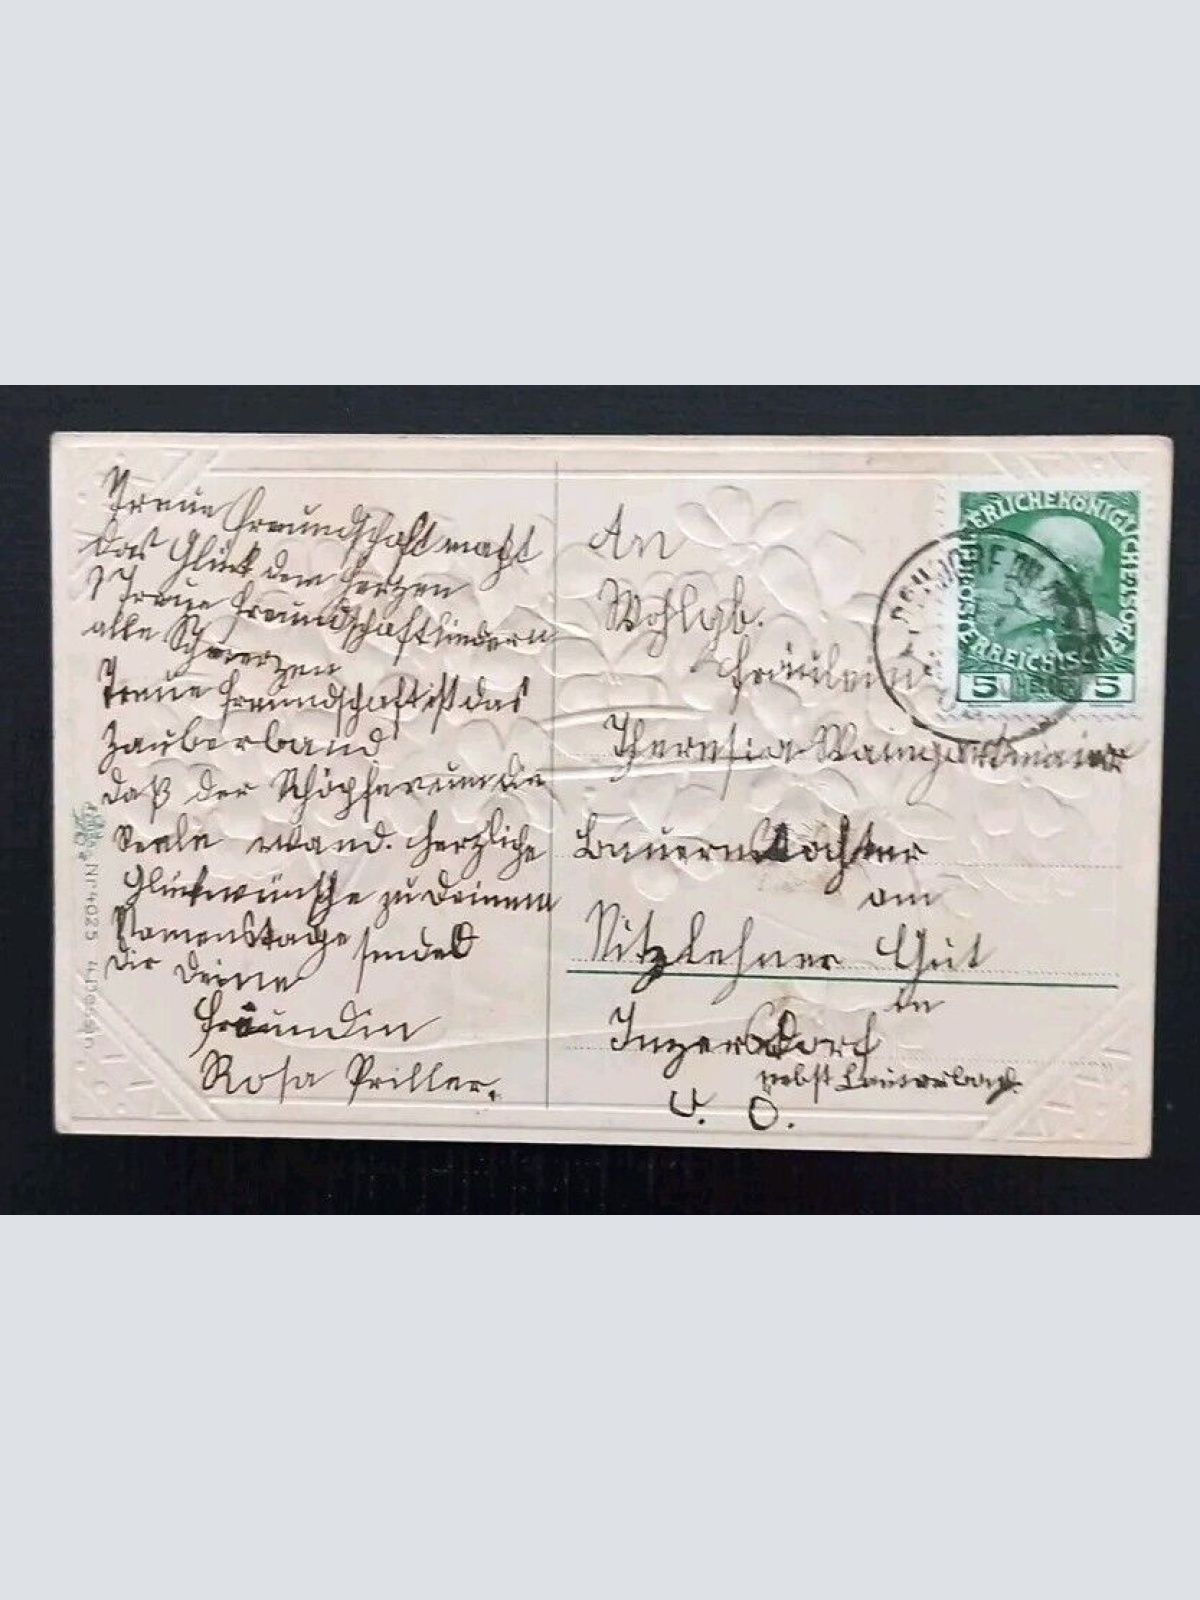 Treue Freundschaft macht
das Glück dem Herzen
Treue Freundschaft lindern
alle Schmerzen
Treue Freundschaft ist das
Zauberband
daß der Schöpfer um die
Seele wand. Herzliche
Glückwünsche zu Deinem
Namenstage sendet
Dir Deine
Freundin
Rosa Priller.
Nr 4025 4. Dessin.
An
Wohlgb.
Fräulein
Theresia
Bauernstochter
am
Nitzlehner Gut
in
Inzersdorf
nebst Lauterbach.
O. Ö.
KAISERLICHEKÖNIGLICHE
ÖSTERREICHISCHE POST
5 HELLER 5